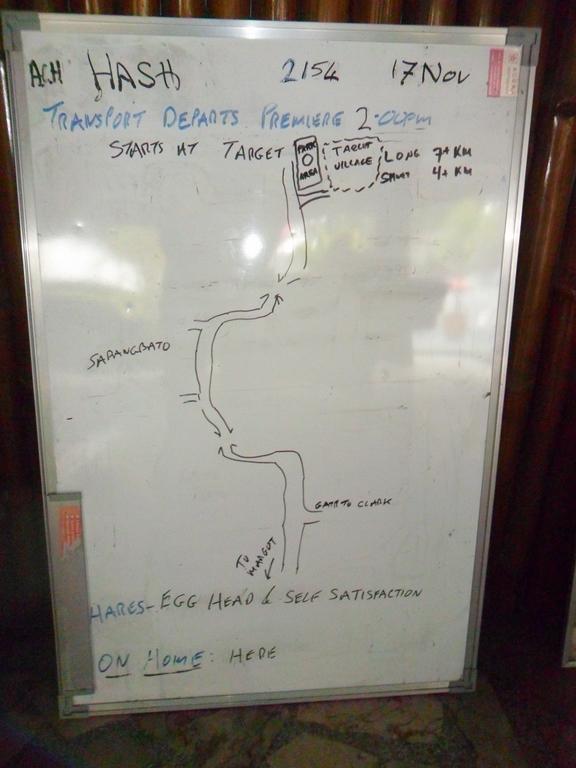 ACH HASH 2154 17 NOV
TRANSPORT DEPARTS PREMIERE 2-00PM
STARTS AT TARGET
PARK
AREA
TARGET
VILLAGE
LONG 7+ KM
SHORT 4+ KM
SAPANGBATO
GATE TO CLARK
TO
MARGOT
HARES- EGG HEAD & SELF SATISFACTION
ON HOME: HERE